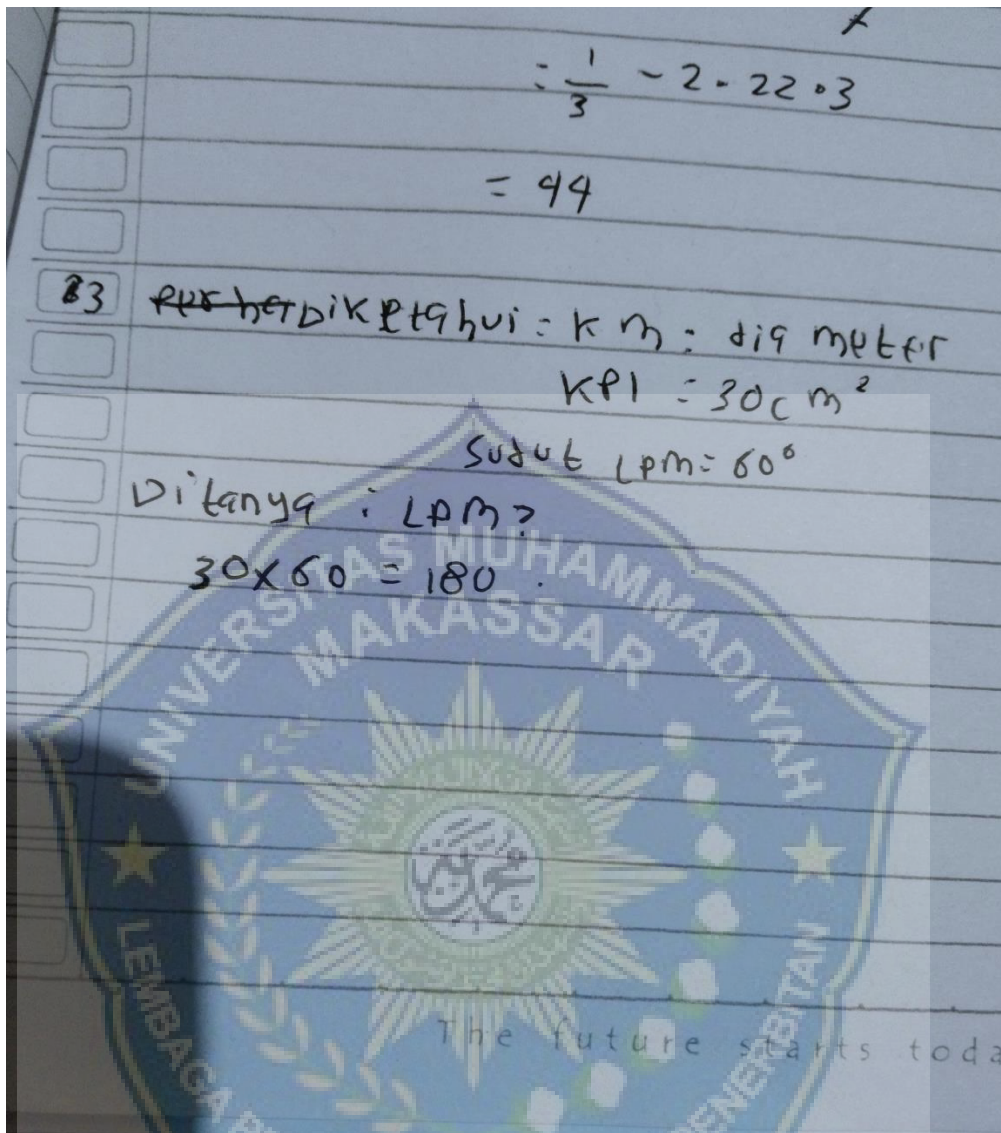 = 1/3 - 2 . 22 . 3
= 44
3 Diketahui = KM = diameter
KPl = 30cm²
Sudut LPM = 60°
Ditanya : LPM?
30 x 60 = 180 .
UNIVERSITAS MUHAMMADIYAH
MAKASSAR
محمد
LEMBAGA
PENERBITAN
The future starts toda